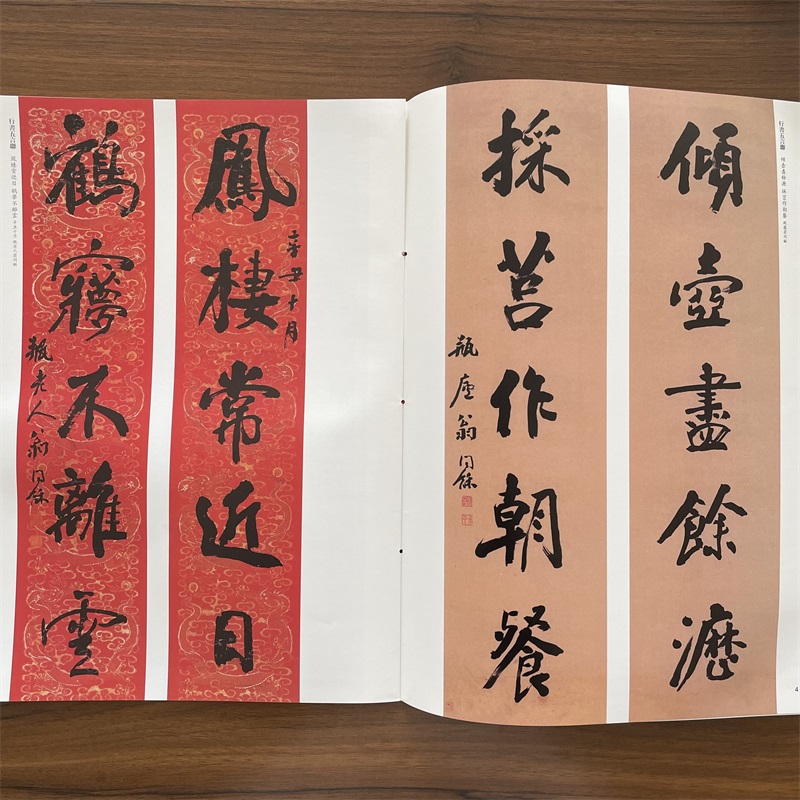 行書五言聯
傾壺盡餘瀝
採苕作朝餐
瓶廬翁同龢
鳳棲常近日
辛丑十月
鶴夢不離雲
瓶老人翁同龢
行書五言聯
鳳棲常近日 鶴夢不離雲 辛丑十月 瓶老人翁同龢